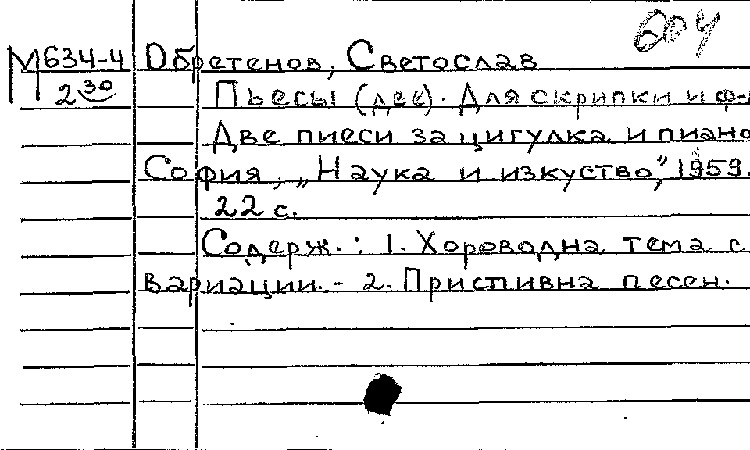 204
М 634-4 Обретенов, Светослав
2 30 Пьесы (две). Для скрипки и ф-
Две пиеси за цигулка и пиано
София, „Наука и изкуство”, 1959.
22 с.
Содерж.: 1. Хороводна тема с
вариации. - 2. Приспивна песен.